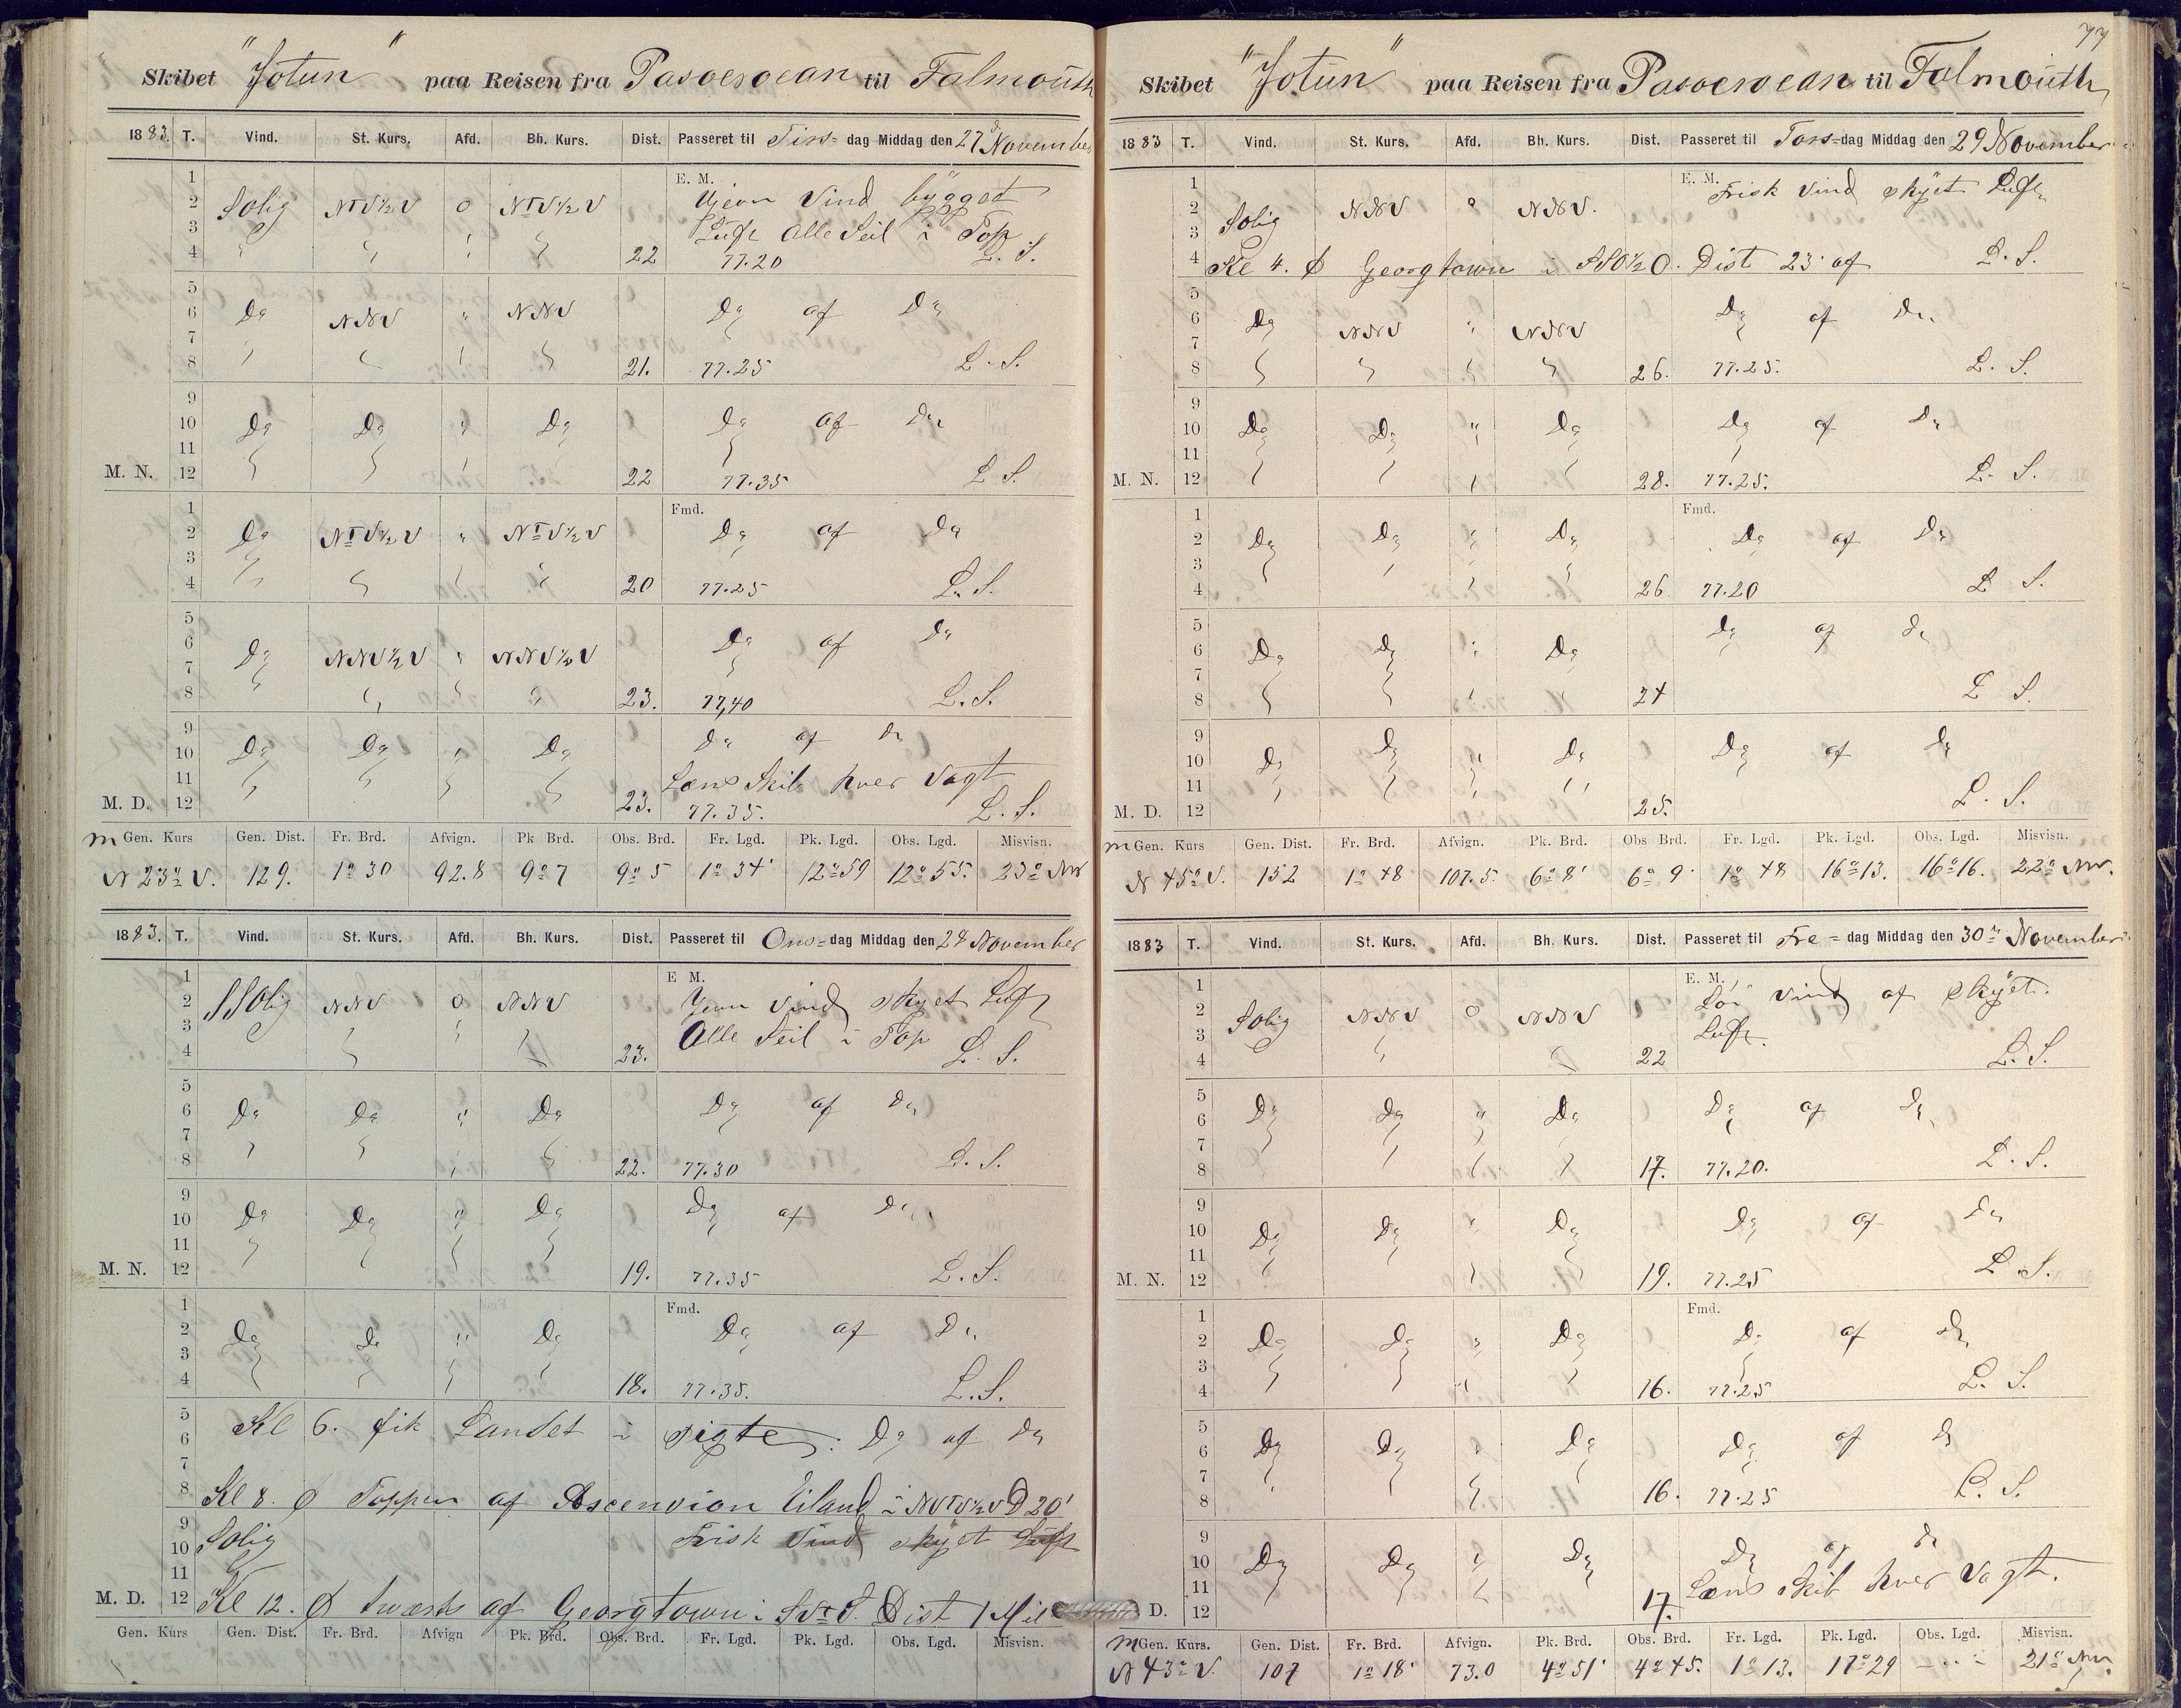 Skibet "Jotun" paa Reisen fra Pasoeroean til Falmouth
1883. T. Vind. St. Kurs. Afd. Bh. Kurs. Dist. Passeret til Tirs=dag Middag den 27d November
E. M.
1
2 Solig NTV½V 0 NTV½V Vind bygget
3 Luft Alle Seil i Top
4 22 77.20 L. S.
5
6 Do NNV " NNV Do af Do
7
8 21. 77.25 L. S.
9
10 Do Do " Do Do af Do
11
M. N. 12 22 77.35 L. S.
Fmd.
1
2 Do NTV½V " NTV½V Do af Do
3
4 20 77.25 L. S.
5
6 Do NNV½V " NNV½V Do af Do
7
8 23. 77,40 L. S.
9 Do af Do
10 Do Do " Do
11 Lens Skib hver Vagt
M. D. 12 23. 77.35. L. S.
m Gen. Kurs Gen. Dist. Fr. Brd. Afvign. Pk Brd. Obs. Brd. Fr. Lgd. Pk. Lgd. Obs. Lgd. Misvisn.
N 23° V. 129. 1° 30 92.8 9° 7 9° 5 1° 34' 12° 59 12° 55. 23° NV
1883. T. Vind. St. Kurs. Afd. Bh. Kurs. Dist. Passeret til Ons=dag Middag den 28 November
E M.
1
2 SSOlig NNV 0 NNV Jevn Vind skyet Luft
3 Alle Seil i Top
4 23. L. S.
5
6 Do Do " Do Do af Do
7
8 22. 77.30 L. S.
9
10 Do Do " Do Do af Do
11
M. N. 12 19. 77.35 L. S.
Fmd.
1
2 Do Do " Do Do af Do
3
4 18. 77.35. L. S.
5
6 Kl 6. fik Landet i sigte: Do af Do
7
8 Kl 8. Toppen af Ascension Eiland i NVTV½V D 20'
9
10 Solig Frisk Vind skyet Luft
11
M. D. 12 Kl 12. tværts af Georgtown i SVTS. Dist 1 Mil
Gen. Kurs Gen. Dist. Fr. Brd. Afvign Pk. Brd. Obs. Brd. Fr. Lgd. Pk. Lgd. Obs. Lgd. Misvisn.
77
Skibet "Jotun" paa Reisen fra Pasoeroean til Falmouth
1883 T. Vind. St. Kurs. Afd. Bh. Kurs. Dist. Passeret til Tors=dag Middag den 29 November
E. M.
1 Frisk Vind skyet Luft
2 Solig NNV " NNV.
3
4 Kl 4. Georgtown i SSO½O. Dist 23' af L. S.
5
6 Do NNV " NNV Do af Do
7
8 26. 77.25. L. S.
9
10 Do Do " Do Do af Do
11
M. N. 12 28. 77.25. L. S.
Fmd.
1
2 Do Do " Do Do af Do
3
4 26. 77.20 L S.
5
6 Do Do " Do Do af Do
7
8 24 L S.
9
10 Do Do " Do Do af Do
11
M. D. 12 25. L. S.
m Gen. Kurs Gen. Dist. Fr. Brd. Afvign. Pk. Brd. Obs Brd. Fr. Lgd. Pk. Lgd. Obs. Lgd. Misvisn.
N 45° V. 152 1° 48 107.5. 6° 8' 6° 9' 1° 48 16° 13. 16° 16. 22° NV.
1883 T. Vind. St. Kurs. Afd. Bh. Kurs. Dist. Passeret til Fre=dag Middag den 30 November
E. M.
1 Vind af skyet.
2 Solig NNV 0 NNV Luft.
3
4 22 L. S.
5
6 Do Do " Do Do af Do
7
8 17. 77.20. L. S.
9
10 Do Do " Do Do af Do
11
M. N. 12 19. 77.25 L. S.
Fmd.
1
2 Do Do " Do Do af Do
3
4 16. 77.25 L. S.
5
6 Do Do " Do Do af Do
7
8 16. 77.25 L. S.
9
10 Do Do " Do Do af Do
11 Lens Skib hver Vagt.
D. 12 17.
m Gen. Kurs. Gen. Dist. Fr. Brd. Afvign. Pk. Brd. Obs. Brd. Fr. Lgd. Pk. Lgd. Obs. Lgd. Misvisn.
N 43° V. 107 1° 18' 73.0 4° 51' 4° 45. 1° 13. 17° 29 21° NV.